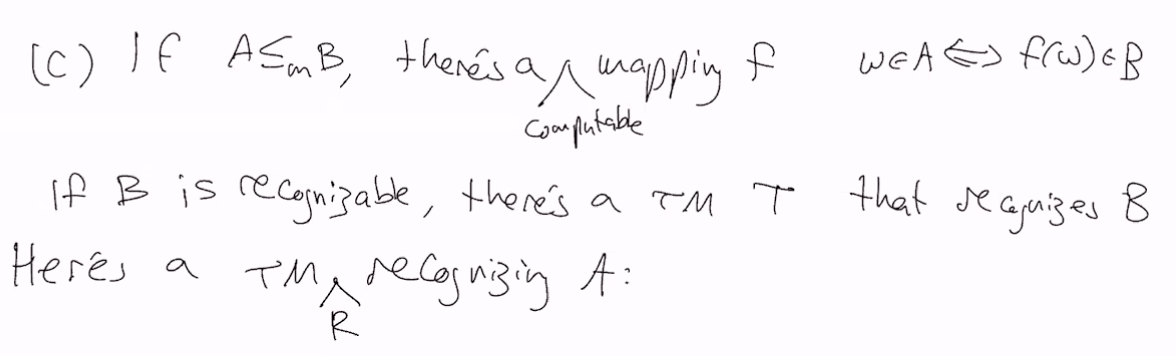 (C) If A ≤m B, there's a computable mapping f w∈A ⟺ f(w)∈B
If B is recognizable, there's a TM T that recognizes B
Here's a TM R recognizing A: